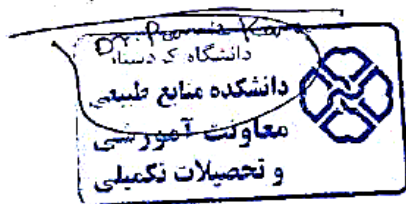 Dr.
دانشگاه کردستان
دانشکده منابع طبیعی
معاونت آموزشی
و تحصیلات تکمیلی